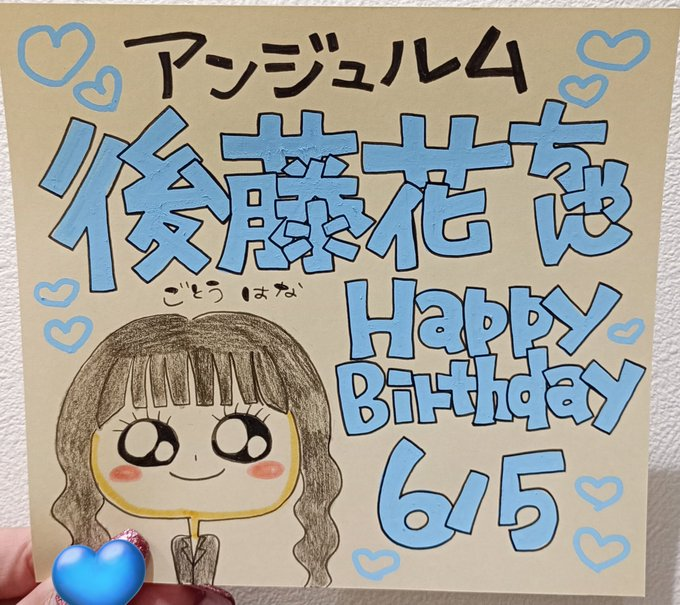 アンジュルム
後藤花ちゃん
ごとう はな
Happy
Birthday
6/5